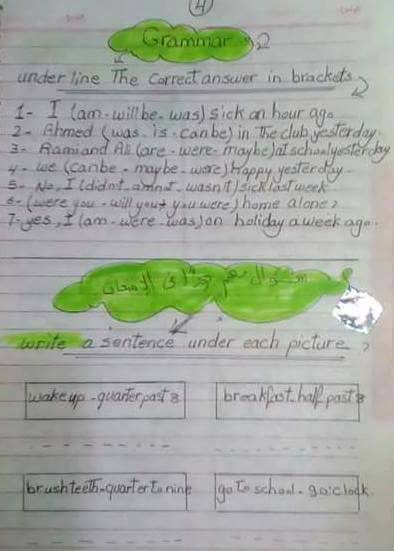 4
Grammar
underline The correct answer in brackets
1- I (am - will be - was) sick an hour ago
2- Ahmed (was - is - can be) in The club yesterday.
3- Rami and Ali (are - were - maybe) at school yesterday
4- we (can be - maybe - were) happy yesterday
5- No, I (didn't - amnot - wasn't) sick last week
6- (were you - will you + you were) home alone?
7- yes, I (am - were - was) on holiday a week ago.
سؤال مهم جدا فى الإمتحان
write a sentence under each picture
wake up - quarter past 8
breakfast - half past 8
brush teeth - quarter to nine
go to school - 9 o'clock.